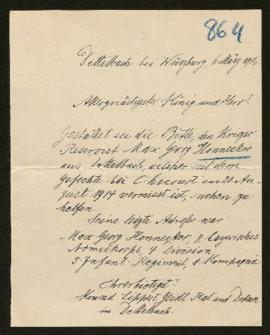 864
Dettelbach bei Würzburg, 6 März 1916.
Allergnädigster König und Herr!
Gestattet sei die Bitte, den Krieger
Reservist Max Georg Hennecker
aus Dettelbach, welcher seit dem
Gefechte bei am 25 Au-
gust 1914 vermisst ist, suchen zu
helfen.
Seine letzte Adresse war
Max Georg Hennecker, II. Bayerisches
Armeekorps, 4 Division
5 Infant. Regiment, 8 Kompagnie
Ehrerbietigst
Konrad Lippert Geistl. Rat und Dekan
in Dettelbach.